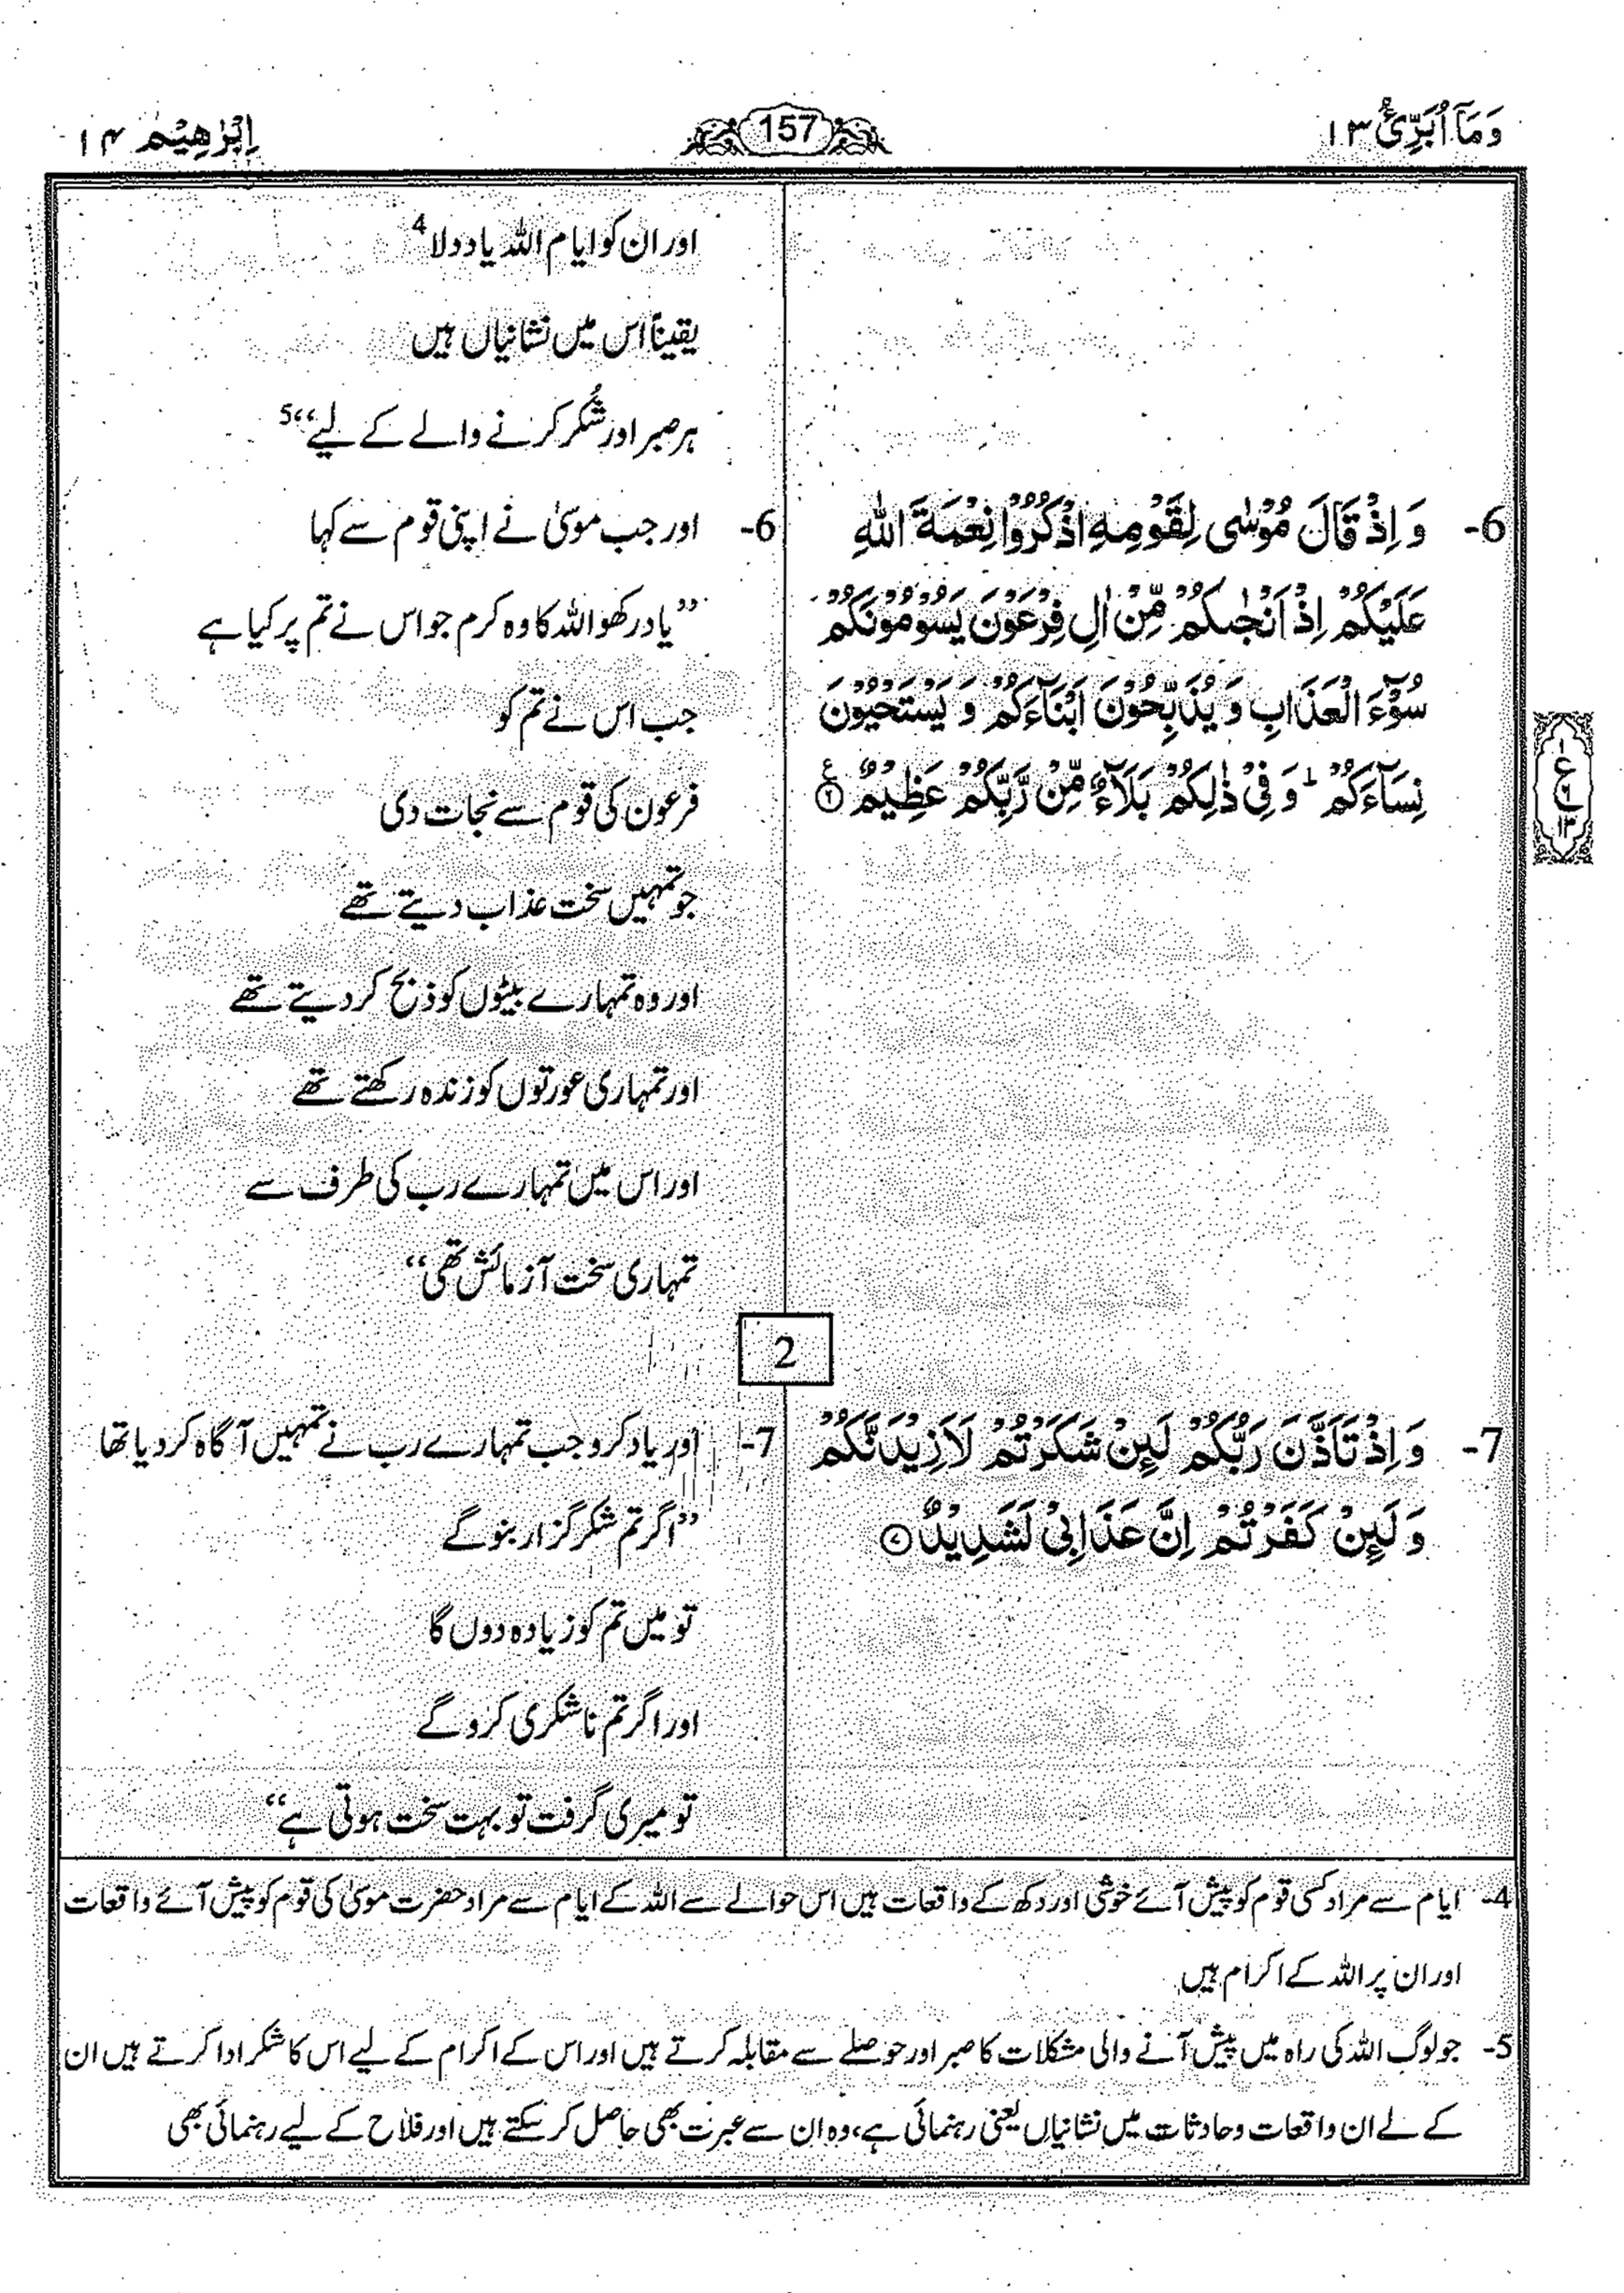 وَمَآ اُبَرِّئُ ۱۳
157
اِبْرٰهِيْم ۱۴
اور ان کو ایام اللہ یاد دولا 4
یقیناً اس میں نشانیاں ہیں
ہر صبر اور شُکر کرنے والے کے لیے‘‘ 5
6- وَ اِذْ قَالَ مُوْسٰى لِقَوْمِهِ اذْكُرُوْا نِعْمَةَ اللّٰهِ
عَلَيْكُمْ اِذْ اَنْجٰىكُمْ مِّنْ اٰلِ فِرْعَوْنَ يَسُوْمُوْنَكُمْ
سُوْٓءَ الْعَذَابِ وَ يُذَبِّحُوْنَ اَبْنَآءَكُمْ وَ يَسْتَحْيُوْنَ
نِسَآءَكُمْ ؕ وَ فِيْ ذٰلِكُمْ بَلَآءٌ مِّنْ رَّبِّكُمْ عَظِيْمٌ ۶ ع
6- اور جب موسیٰ نے اپنی قوم سے کہا
’’یاد رکھو اللہ کا وہ کرم جو اس نے تم پر کیا ہے
جب اس نے تم کو
فرعون کی قوم سے نجات دی
جو تمہیں سخت عذاب دیتے تھے
اور وہ تمہارے بیٹوں کو ذبح کر دیتے تھے
اور تمہاری عورتوں کو زندہ رکھتے تھے
اور اس میں تمہارے رب کی طرف سے
تمہاری سخت آزمائش تھی‘‘
2
7- وَ اِذْ تَاَذَّنَ رَبُّكُمْ لَىِٕنْ شَكَرْتُمْ لَاَزِيْدَنَّكُمْ
وَ لَىِٕنْ كَفَرْتُمْ اِنَّ عَذَابِيْ لَشَدِيْدٌ ۷
7- اور یاد کرو جب تمہارے رب نے تمہیں آگاہ کر دیا تھا
’’اگر تم شکر گزار بنو گے
تو میں تم کو زیادہ دوں گا
اور اگر تم ناشکری کرو گے
تو میری گرفت تو بہت سخت ہوتی ہے‘‘
4- ایام سے مراد کسی قوم کو پیش آئے خوشی اور دکھ کے واقعات ہیں اس حوالے سے اللہ کے ایام سے مراد حضرت موسیٰ کی قوم کو پیش آئے واقعات
اور ان پر اللہ کے اکرام ہیں
5- جو لوگ اللہ کی راہ میں پیش آنے والی مشکلات کا صبر اور حوصلے سے مقابلہ کرتے ہیں اور اس کے اکرام کے لیے اس کا شکر ادا کرتے ہیں ان
کے لے ان واقعات و حادثات میں نشانیاں یعنی رہنمائی ہے، وہ ان سے عبرت بھی حاصل کر سکتے ہیں اور فلاح کے لیے رہنمائی بھی